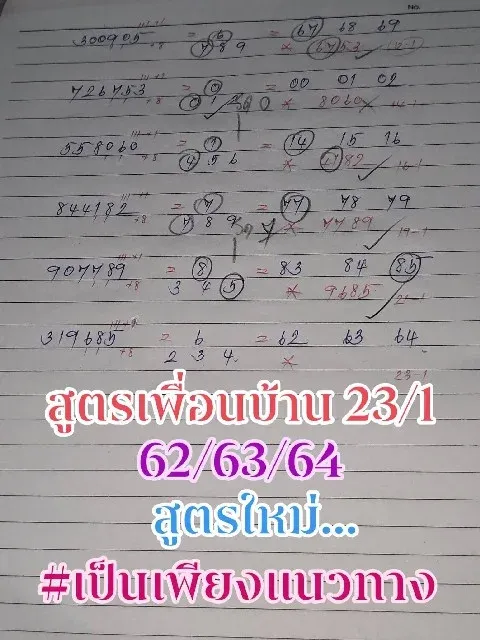 NO.
300905 = 6 = 67 68 69
+8 7 8 9 * 6753 12-1
726753 = 0 = 00 01 02
+8 0 1 * 8060 14-1
558060 = 1 = 14 15 16
+8 4 5 6 * 4182 16-1
844182 = 7 = 77 78 79
+8 7 8 9 7 * 7789 19-1
907789 = 8 = 83 84 85
+8 3 4 5 * 9685 21-1
319685 = 6 = 62 63 64
+8 2 3 4 *
23-1
สูตรเพื่อนบ้าน 23/1
62/63/64
สูตรใหม่...
#เป็นเพียงแนวทาง